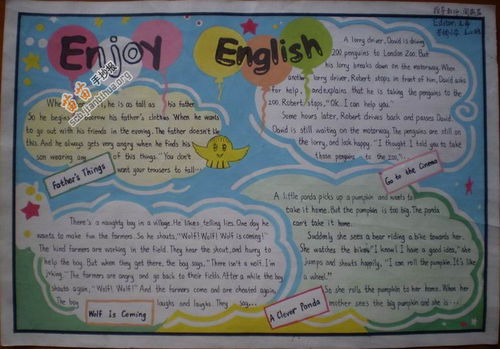 Enjoy English
Editor:
A lorry driver, David is driving
200 penguins to London Zoo. But
his lorry breaks down on the motorway. When
another lorry driver, Robert stops in front of him, David asks
for help, and explains that he is taking the penguins to the
zoo. Robert stops, "Ok. I can help you."
Some hours later, Robert drives back and passes David.
David is still waiting on the motorway. The penguins are still on
the lorry, and look happy. "I thought I told you to take
those penguins to the zoo,"
Go to the Cinema
When he is as tall as his father.
So he begins to borrow his father's clothes when he wants
to go out with his friends in the evening. The father doesn't like
this. And he always gets very angry when he finds his
son wearing any of his things. "You don't
want your trousers to fall
Father's Things
There's a naughty boy in a village. He likes telling lies. One day he
wants to make fun the farmers. So he shouts, "Wolf! Wolf! Wolf is coming!"
The kind farmers are working in the field. They hear the shout, and hurry to
help the boy. But when they get there, the boy says, "There isn't a wolf. I'm
joking." The farmers are angry and go back to their fields. After a while the boy
shouts again, "Wolf! Wolf!" And the farmers come and are cheated again,
The boy laughs and laughs. They say...
Wolf Is Coming
A little panda picks up a pumpkin and wants to
take it home. But the pumpkin is too big. The panda
can't take it home.
Suddenly she sees a bear riding a bike towards her.
She watches the bike. "I know! I have a good idea," she
jumps and shouts happily, "I can roll the pumpkin. It's like
a wheel."
So she rolls the pumpkin to her home. When her
mother sees the big pumpkin and she is...
A Clever Panda
手抄报
shouchaobao.org